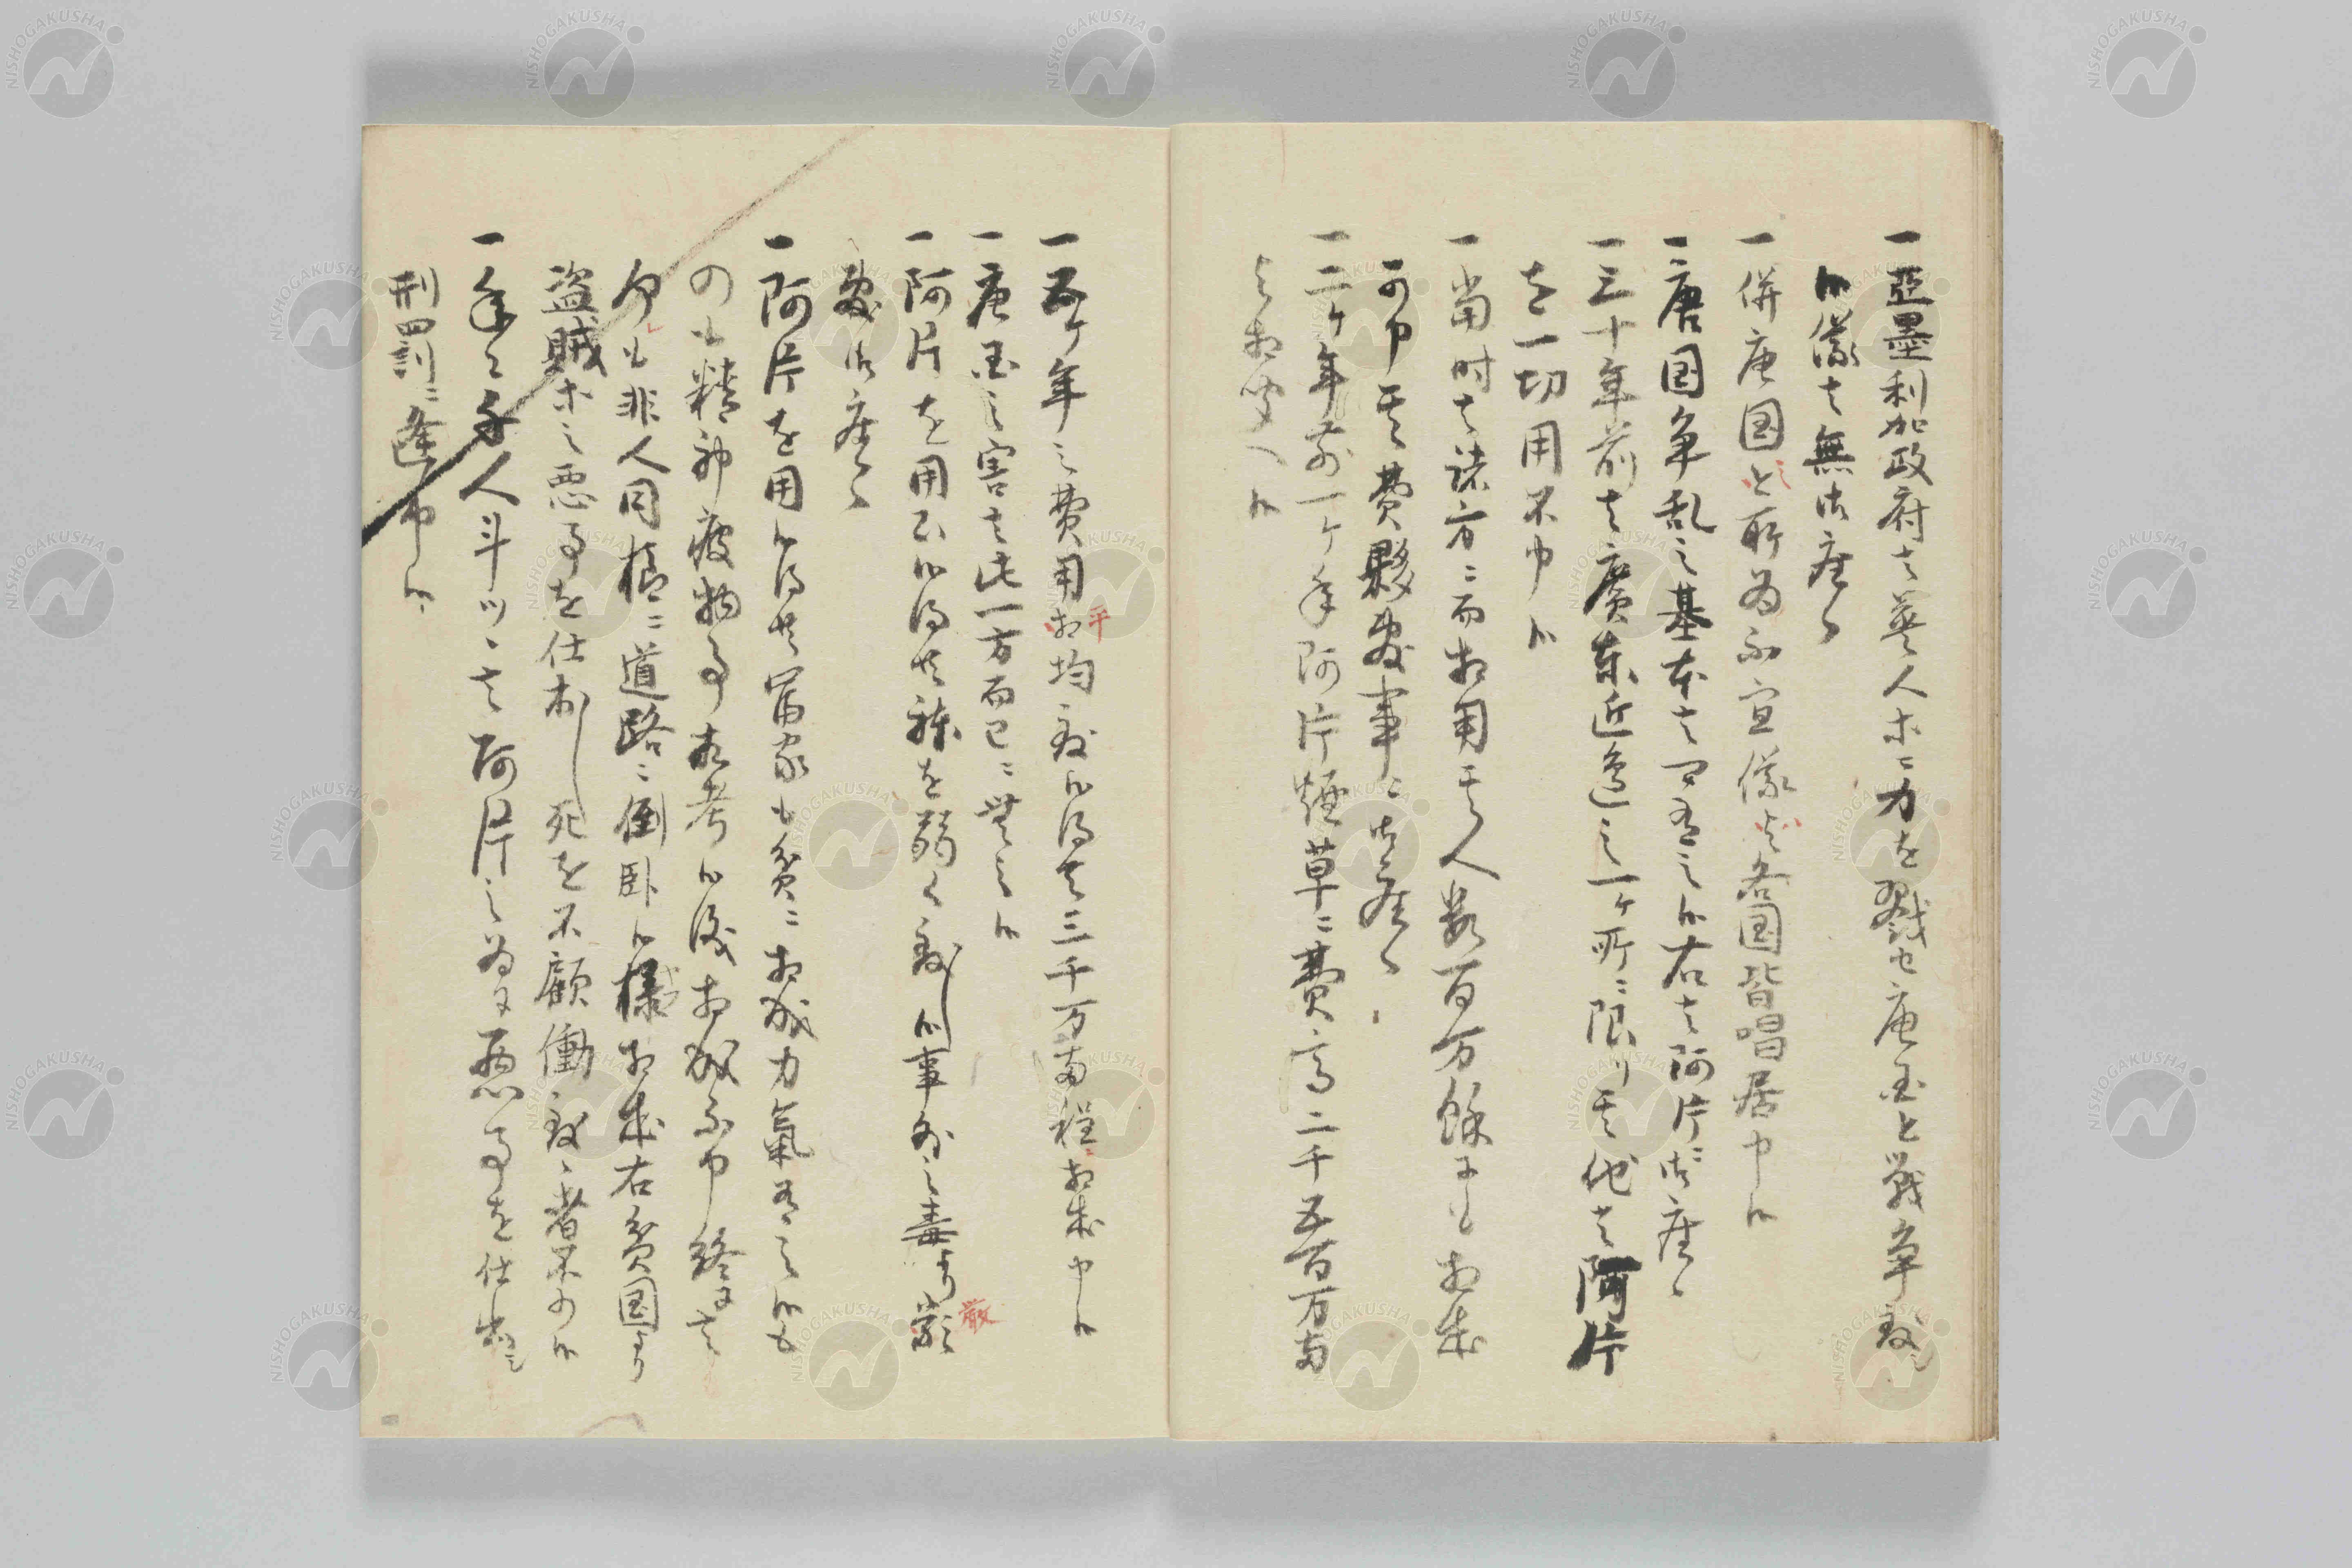 一亜墨利加政府者英人等ニ力を戮セ唐国と戦争致し
候儀者無御座候
一併唐国之所為不宜儀ハ各国皆唱居申候
一唐国争乱之基本者品々有之候右者阿片ニ御座候
一三十年前者廣東近邊之一ケ所ニ限り其他者阿片
を一切用不申候
一當時者諸方ニ而相用其人数百万餘ニも相成
可申其費夥敷事ニ御座候
一二ケ年前一ケ年阿片煙草ニ費高二千五百万両
と相聞へ候
一五ケ年之費用平均致候得者三千万両程ニ相成申候
一唐国之害者此一方而已ニ無之候
一阿片を用ひ候得共躰を弱く致し候事外之毒より嚴
敷御座候
一阿片を用候得共富家も貧ニ相成力氣有之候も
のも精神疲物事相考候儀相成不申終ニ者
何も非人同様ニ道路ニ倒臥候様相成右貧困より
盗賊等之悪事を仕出し死を不顧働致候者不少候
一年々千人斗ツヽ者阿片之為ニ悪事を仕出し
刑罰ニ逢申候
厳
NISHOGAKUSHA